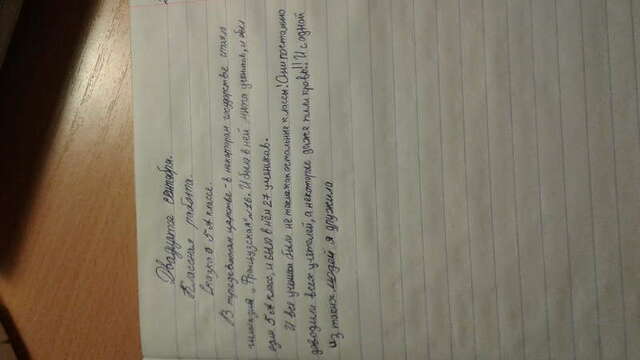 Двадцатое сентября.
Классная работа.
Сказка о 5 "А" классе.
В тридевятом царстве - в некотором государстве стояла
гимназия "Французская" №16. И было в ней много учеников, и был
один 5 "А" класс, и было в нём 27 учеников.
И все ученики были не похожи на остальные классы! Они постоянно
доводили всех учителей, а некоторые даже пили кровь!! И с одной
из таких людей я дружила